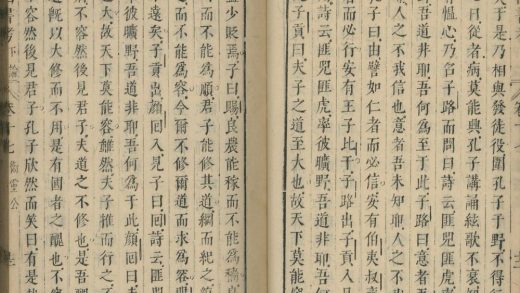 夫于是乃相與發徒役圍孔子于野不得行
從者病莫能興孔子講誦絃歌不衰
慍心乃召子路而問曰詩云匪兕匪虎
彼曠野吾道非耶吾何為至于此子路曰意者吾
人之不我信也意者吾未知耶人之不
孔子曰由譬如仁者而必信安有伯夷叔
者而必行安有王子比干子路出子貢入見
詩云匪兕匪虎率彼曠野吾道非耶吾
子貢曰夫子之道至大也故天下莫能容
盍少貶焉子曰賜良農能稼而不能為穡良
而不能為順君子能修其道綱而紀之
而不能為容今爾不修爾道而求為容
遠矣子貢出顏回入見子曰回詩云匪兕
彼曠野吾道非耶吾何為于此顏回曰夫
大故天下莫能容雖然夫子推而行之不
不容然後見君子夫道之不修也是吾醜
道既以大修而不用是有國者之醜也不容
容然後見君子孔子欣然而笑曰有是哉
衛靈公